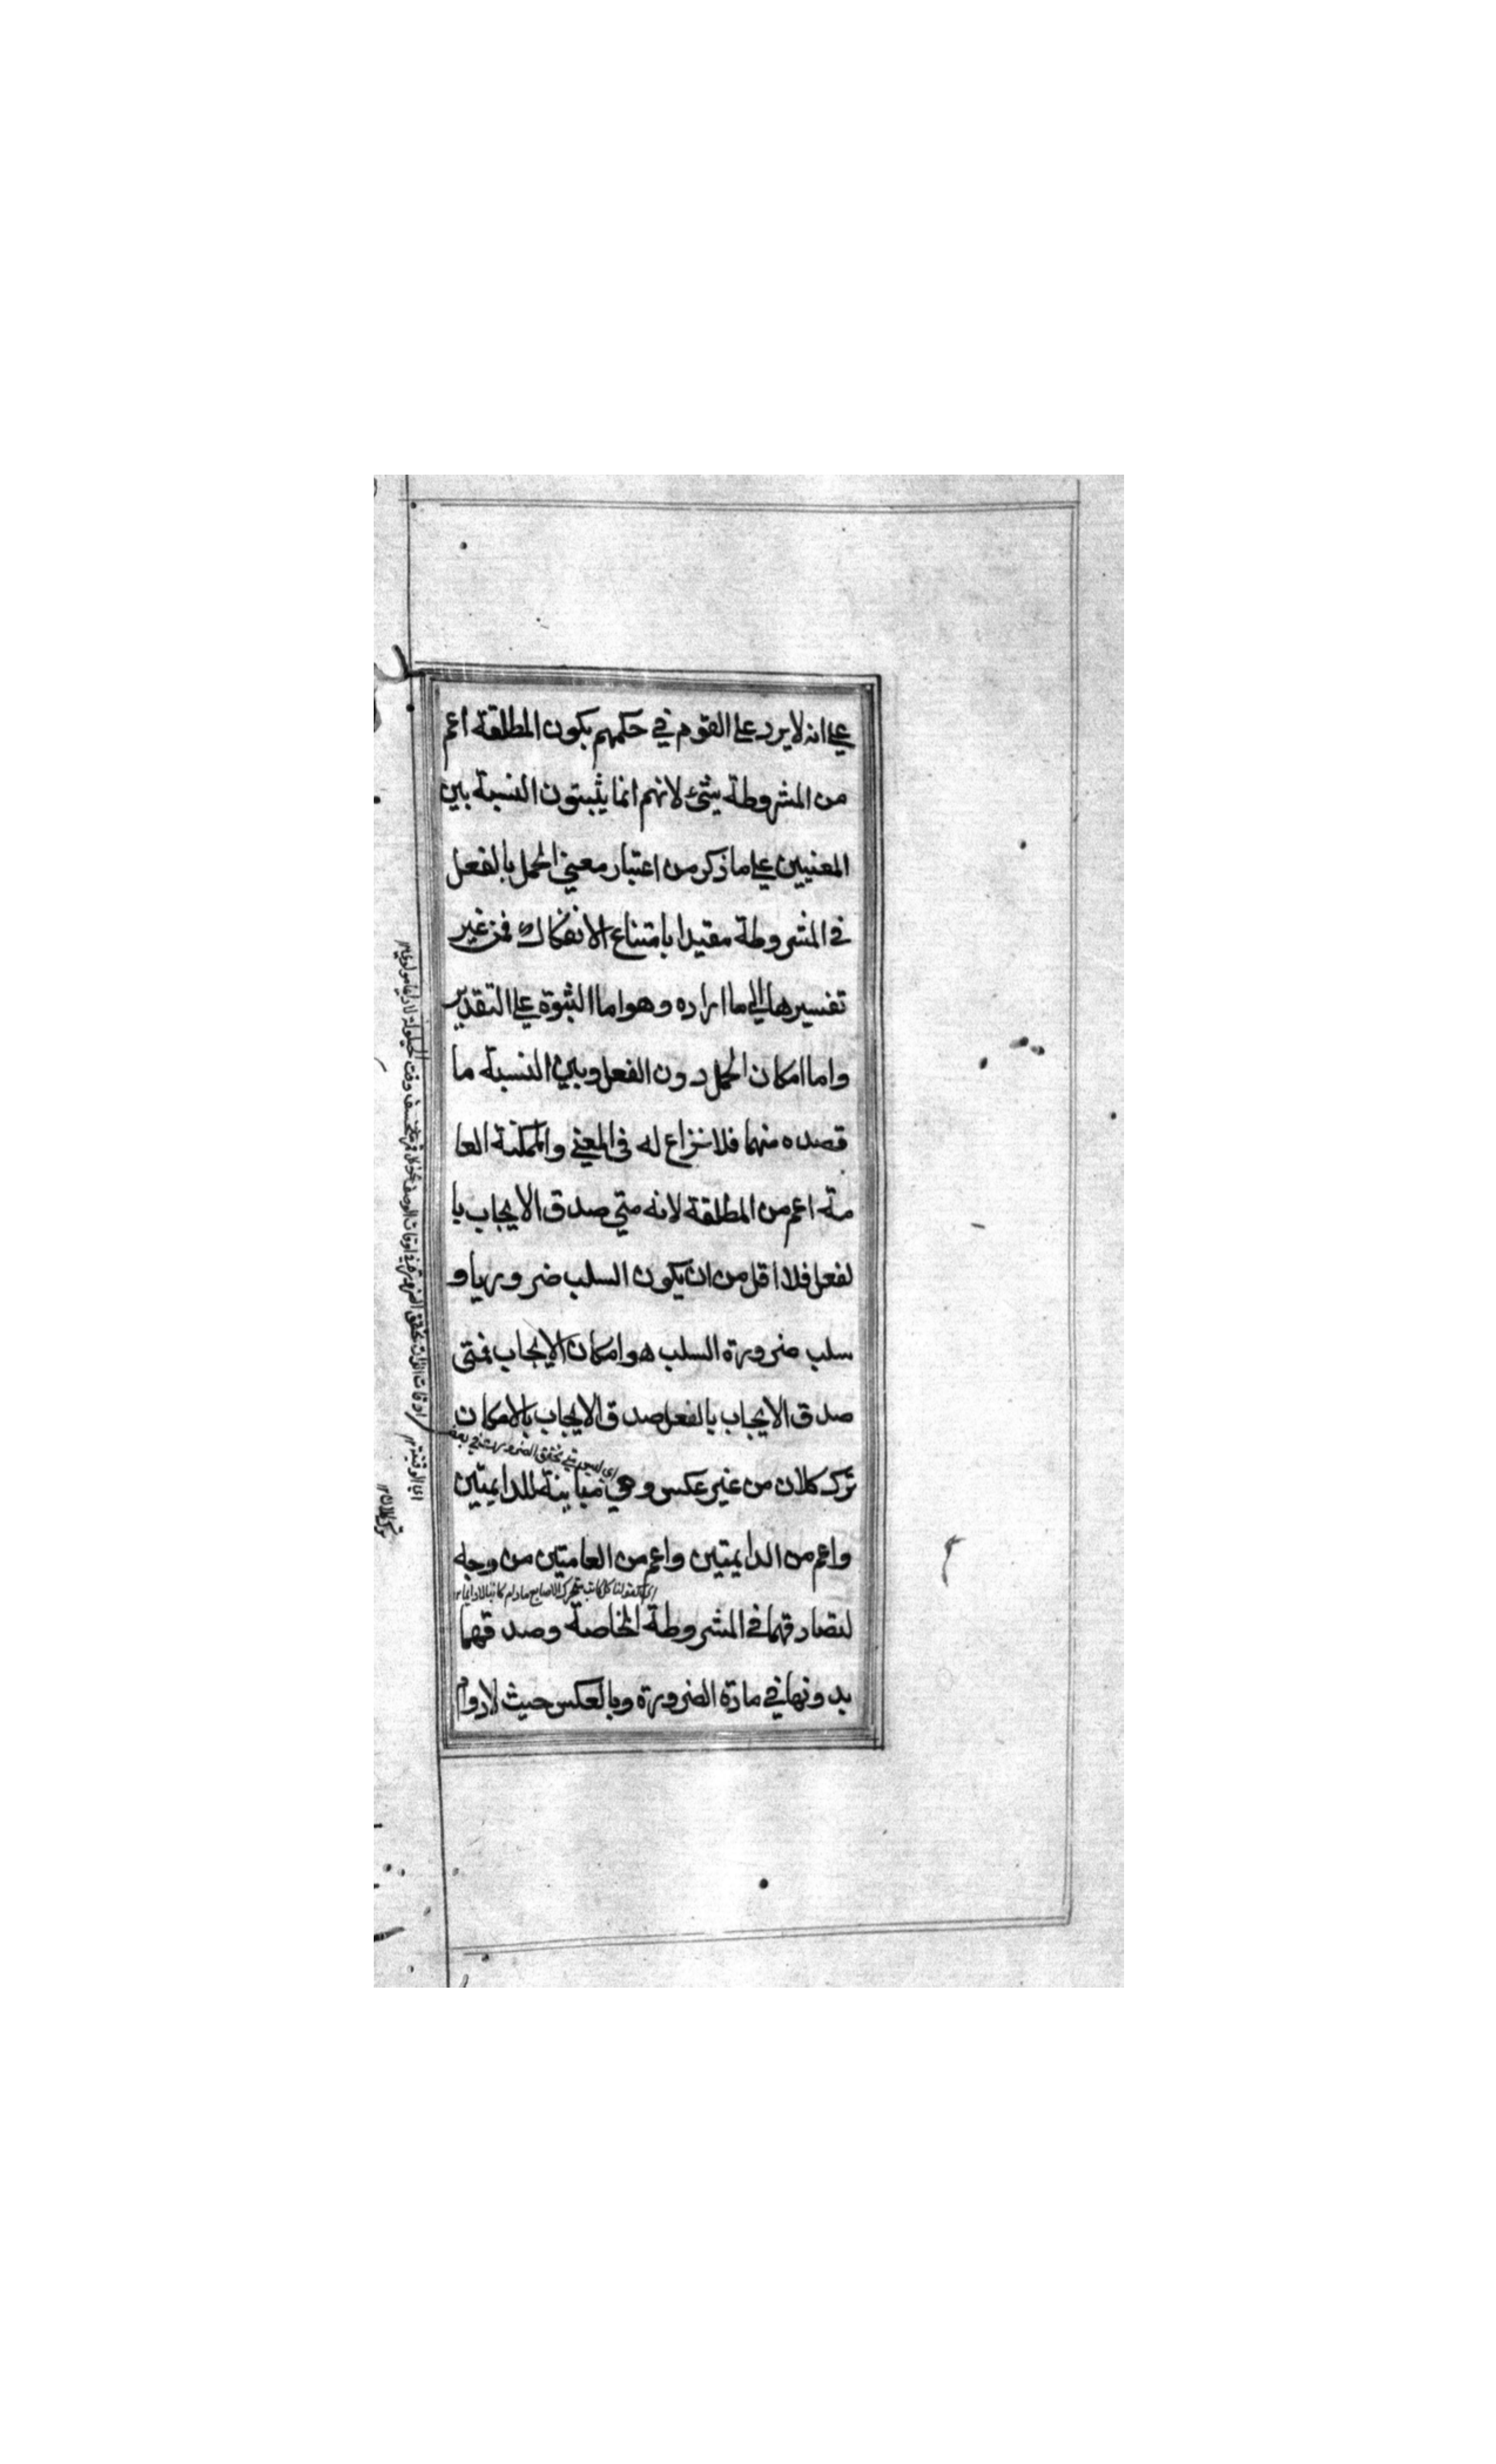 علي انه لا يرد علي القوم في حكمهم بكون المطلقة اعم
من المشروطة بشئ لانهم انما يثبتون النسبة بين
المعنيين علي ما ذكر من اعتبار معني الحمل بالفعل
في المشروطة مقيدا بامتناع الانفكاك فمن غير
تفسيرها الي ما اراده وهو اما الثبوة علي التقدير
واما امكان الحمل دون الفعل وبين النسبة ما
قصده منهما فلا نزاع له في المعني والممكنة العا
مة اعم من المطلقة لانه متي صدق الايجاب با
لفعل فلا اقل من ان يكون السلب ضروريا و
سلب ضرورة السلب هو امكان الايجاب فمتي
صدق الايجاب بالفعل صدق الايجاب بالامكان
تركلان من غير عكس وهي مباينة للدايمتين
واعم من الدايمتين واعم من العامتين من وجه
اي كقولنا كل كاتب متحرك الاصابع مادام كاتبا لا دايما ١٢
لتصادقهما في المشروطة الخاصة وصدقهما
بدونها في مادة الضرورة وبالعكس حيث لا دوام